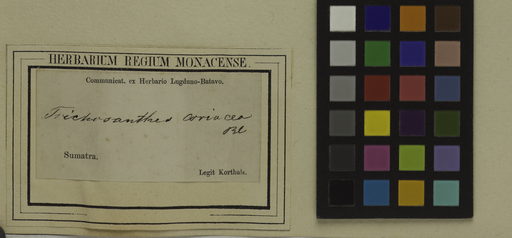 HERBARIUM REGIUM MONACENSE.
Communicat. ex Herbario Lugduno-Batavo.
Trichosanthes coriacea
Bl
Sumatra.
Legit Korthals.